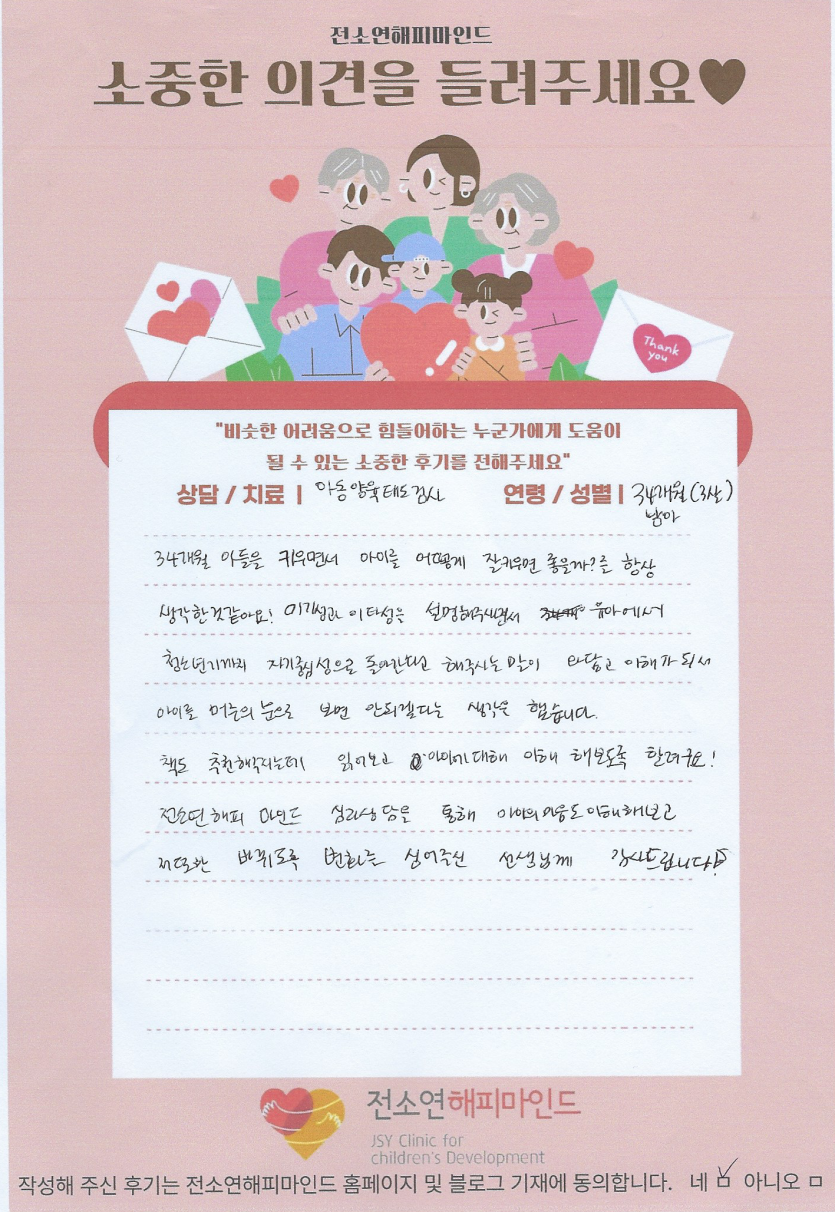 전소연해피마인드
소중한 의견을 들려주세요♥
Thank
you
"비슷한 어려움으로 힘들어하는 누군가에게 도움이
될 수 있는 소중한 후기를 전해주세요"
상담 / 치료 | 아동양육태도검사 연령 / 성별 | 34개월(3살)
남아
34개월 아들을 키우면서 아이를 어떻게 잘키우면 좋을까?를 항상
생각한것같아요! 이기성과 이타성은 설명해주시면서 유아에서
청소년기까지 자기중심성으로 돌아간다고 해주시는 말이 와닿고 이해가 되서
아이를 어른의 눈으로 보면 안되겠다는 생각은 했습니다.
책도 추천해주시는데 읽어보고 아이에대해 이해 해보도록 하려구요!
전소연해피 마인드 심리상담을 통해 아이의 마음도 이해해보고
저또한 바뀌도록 변화를 심어주신 선생님께 감사드립니다!
전소연해피마인드
JSY Clinic for
children's Development
작성해 주신 후기는 전소연해피마인드 홈페이지 및 블로그 기재에 동의합니다. 네 ☑ 아니오 □